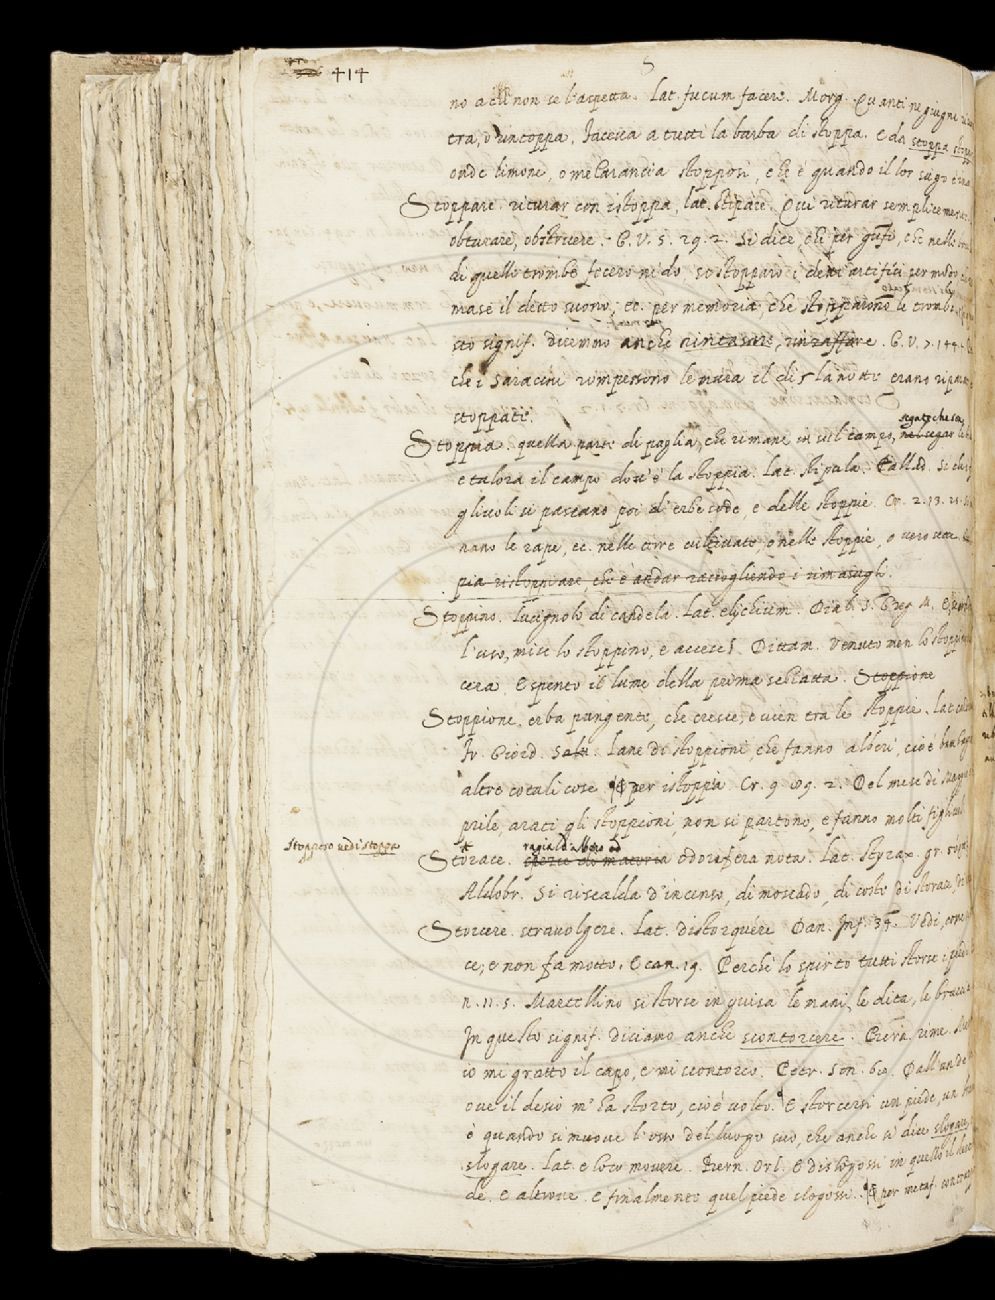 414
no a chi non se l'aspetta. Lat. fucum facere. Morg. Quanti ne giugne
tra, o intoppa, Faceua a tutti la barba di stoppa. E da stoppa
onde limone, o melarancia stopposi, che è quando il lor sugo è
Stoppare. riturar con istoppa, lat. stipare. Qui riturar semplicemente
obturare, obstruere. G. V. 5. 29. 2. Si dice, che per gufo, che nelle
di quelle trombe fecero nido, so stopparo i detti artifici per modo
mase il detto suono, ec. per memoria, che stopparono le trombe
sto signif. dicemmo anche rintasare, rinzaffare. G. V. 7. 144.
che i Saracini rompessono le mura il dì, la notte erano riparate
stoppate.
segate che son
Stoppia. quella parte di paglia, che rimane in sul campo, nel segar le
e talora il campo dov'è la stoppia. Lat. stipula. Pallad.
gliuoli si pascano poi di erbe sode, e delle stoppie. Cr. 2. 13. 21.
nano le rape, ec. nelle terre cultivate, o nelle stoppie, o vero
pia ristoppiare, che è andar raccogliendo i rimasugli.
Stoppino. lucignolo di candela. Lat. elychnium. Dial. S. Greg. M.
l'uso, mise lo stoppino, e accese. Dittam. Venuto men lo stoppino
cera E spento il lume della prima schiatta. Stoppione
Stoppione, erba pungente, che cresce, e vien tra le stoppie. Lat.
Fr. Giord. Salu. lane di stoppioni, che fanno alberi, cioè
altre cotali cose per istoppia Cr. 9. 2. Del mese di Maggio
prile, arati gli stoppioni non si partono, e fanno molti figliuoli
Stopposo vedi stoppa
ragia d'albero od
Storace. spezie di materia odorifera nota. Lat. styrax. gr.
Aldobr. Si riscalda d'incenso, di moscado, di costo di storace,
Storcere. stravolgere. Lat. distorquere Dan. Inf. 34. Vedi, come
ce, e non fa motto. E can. 19. Perchè lo spirto tutti storse i piedi
n. 11. 5. Marcellino si storse in guisa le mani, le dita, le braccia
In questo signif. diciamo anche scontorcere. Bern. rime.
io mi gratto il capo, e mi scontorco. Petr. son. Dall'un de
oue il desio m'ha storto, cioè volto. E storcersi un piede, un
è quando si muove l'osso del luogo suo, che anche si dice slogare
slogare. Lat. e loco movere. Bern. Orl. E dislogossi in quello il
de. E altrove. E finalmente quel piede slogossi. per metaf.